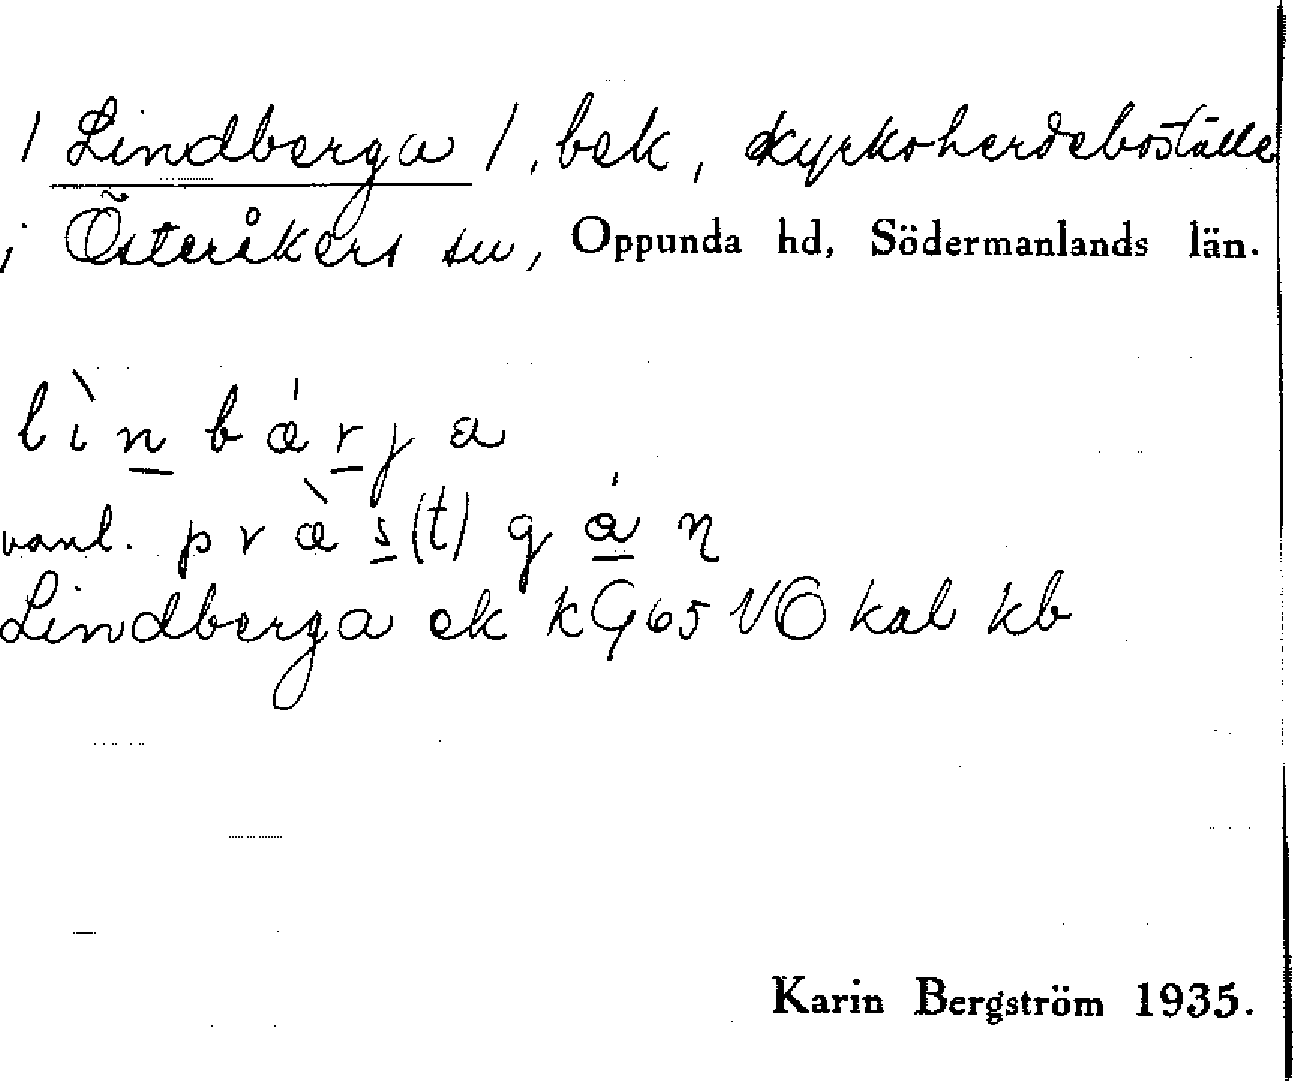 / Lindberga /, bek, kyrkoherdeboställe
i Österåkers sn, Oppunda hd, Södermanlands län.
lìn bǽrja
vanl. præ̀s(t)gá̱ɳ
Lindberga ek kG65 VÖ kal kb
Karin Bergström 1935.